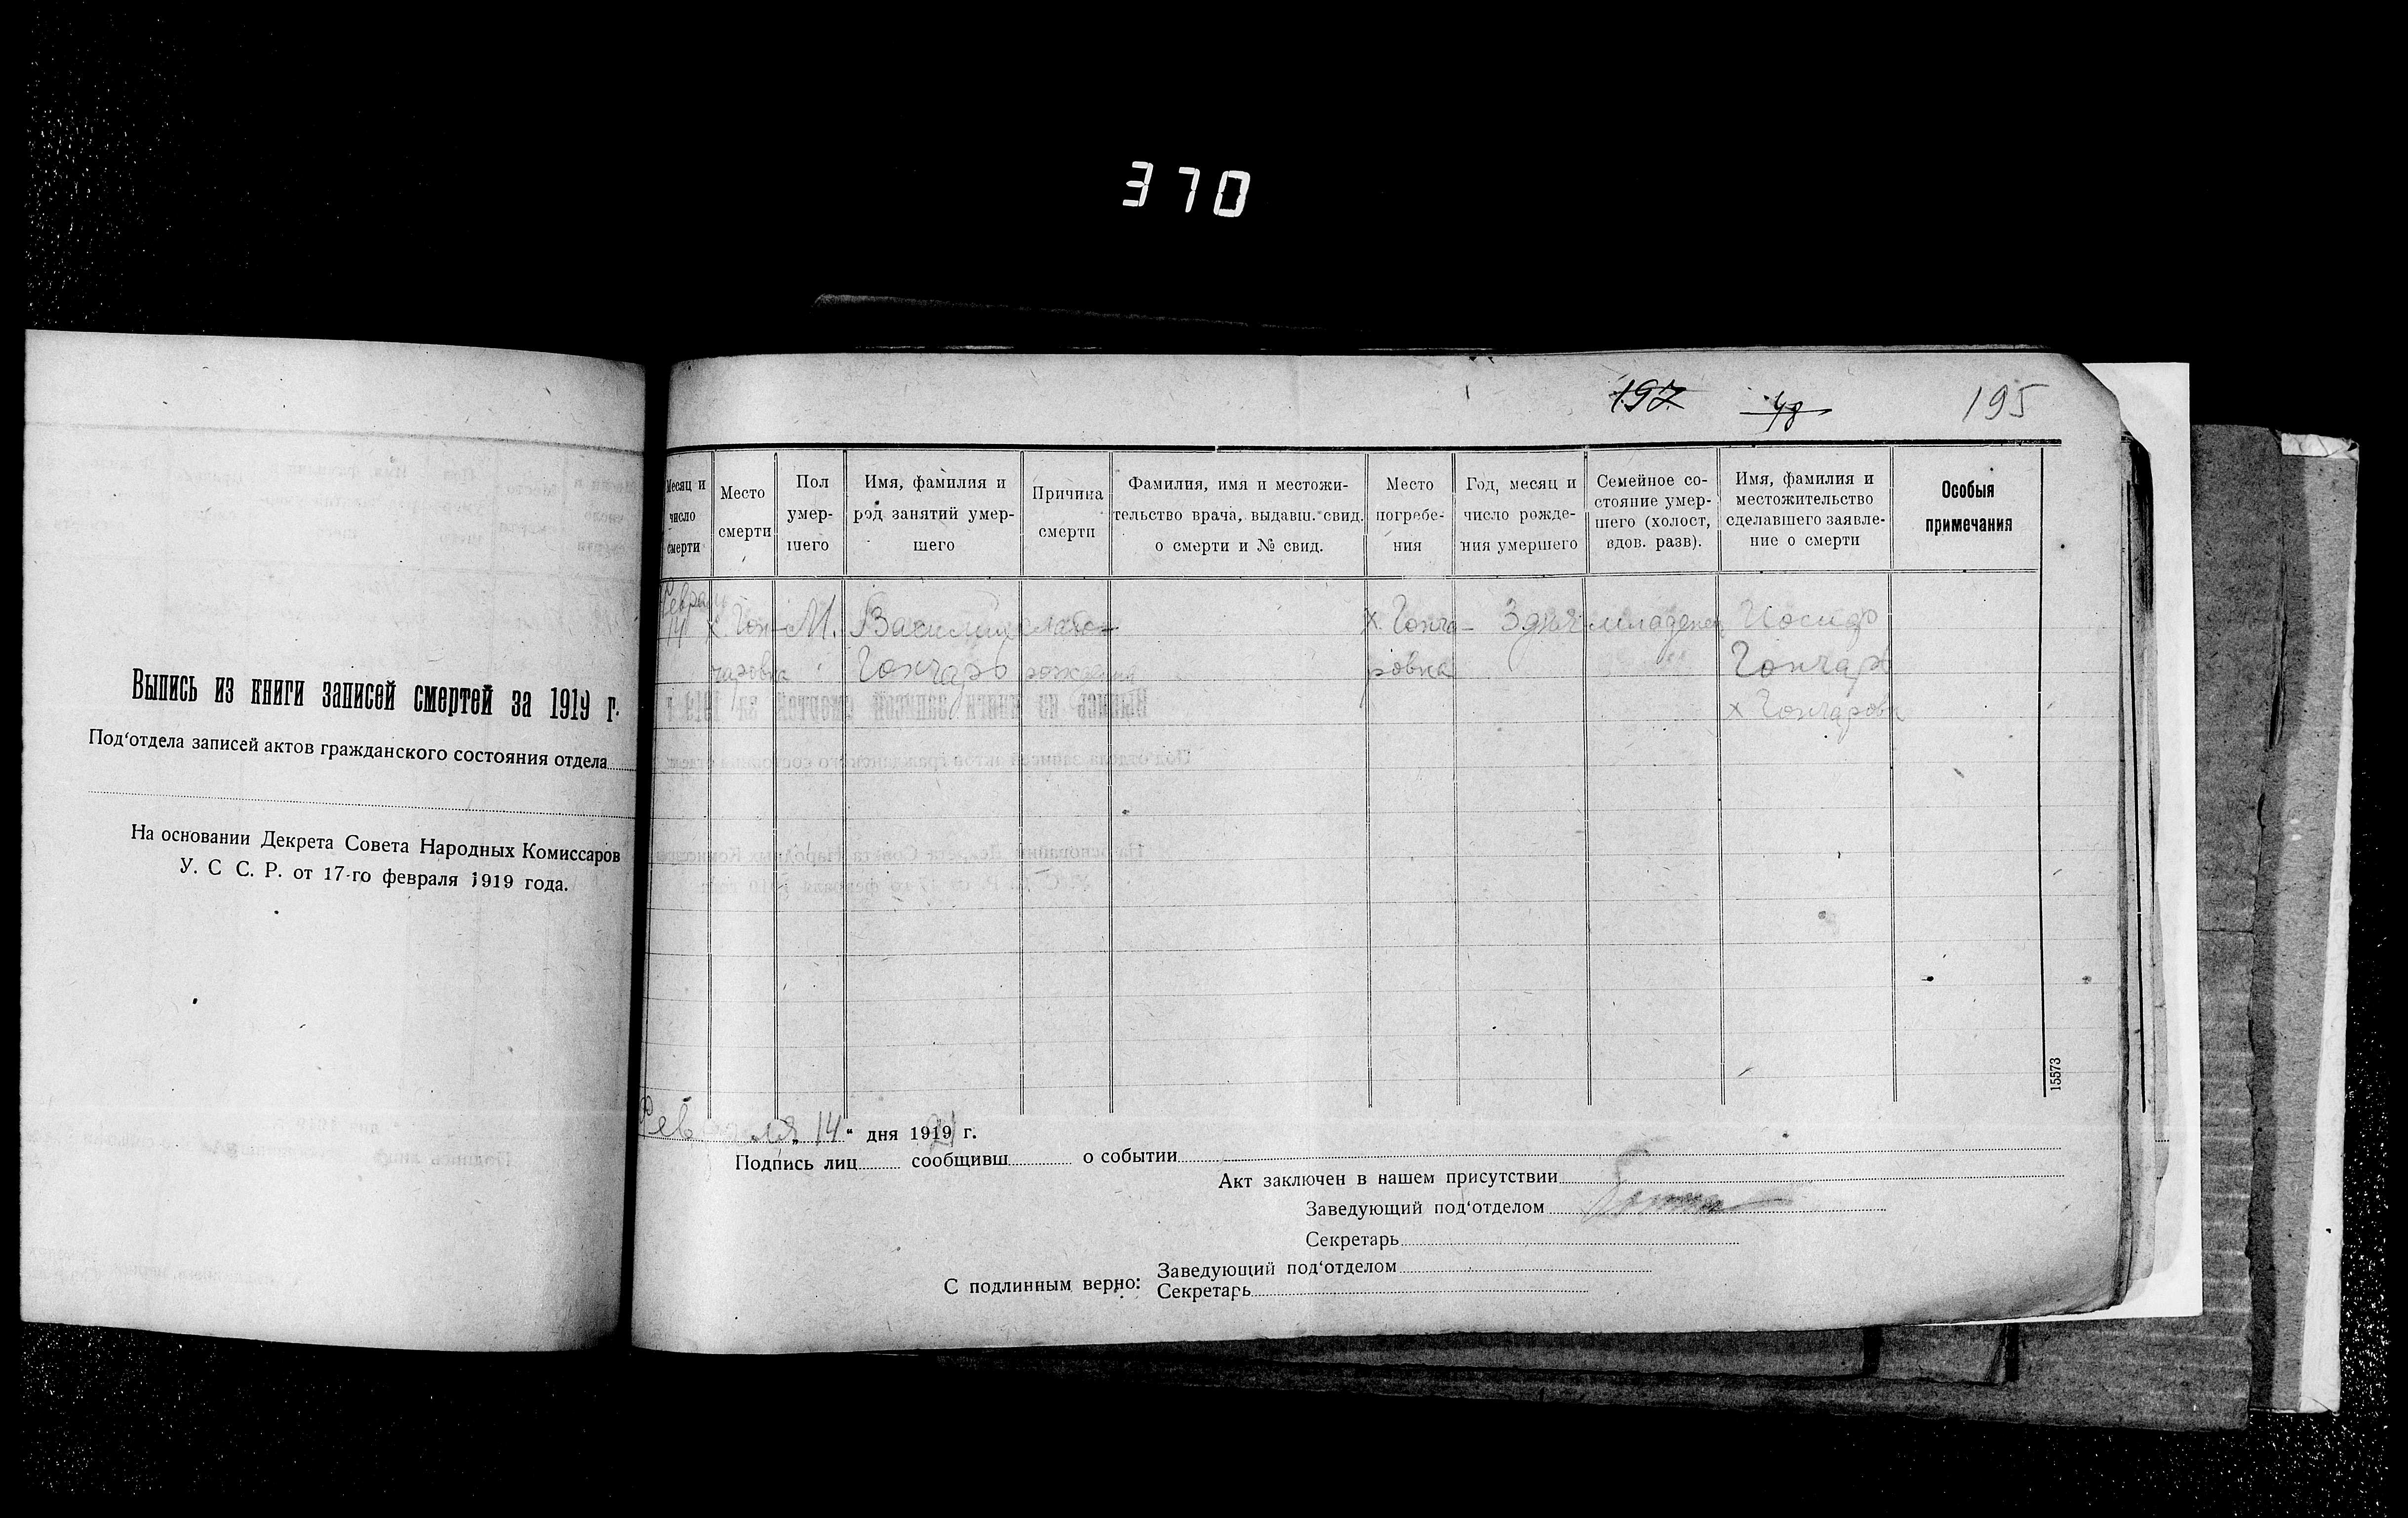 370
197 48 195
Выпись из книги записей смертей за 1919 г.
Под‘отдела записей актов гражданского состояния отдела
На основании Декрета Совета Народных Комиссаров
У. С С. Р. от 17-го февраля 1919 года.
Месяц и число смерти
Место смерти
Пол умер-
шего
Имя, фамилия и
род занятий умер-
шего
Причина
смерти
Фамилия, имя и местожи-
тельство врача, выдавш. свид.
о смерти и № свид.
Место
погребе-
ния
Год, месяц и
число рожде-
ния умершего
Семейное со-
стояние умер-
шего (холост,
вдов. разв).
Имя, фамилия и
местожительство
сделавшего заявле-
ние о смерти
Особыя
примечания
14
х. Гон-
чаровка
М.
Василий
Гончаръ
слабо-
рождения
х. Гонча-
ровка
3 дня
младенец
Иосиф
Гончаръ
х Гончаровка
15573
Февраля 14 “ дня 1919 г.
Подпись лиц сообщивш о событии
Акт заключен в нашем присутствии
Заведующий под‘отделом
Секретарь
С подлинным верно:
Заведующий под‘отделом
Секретарь